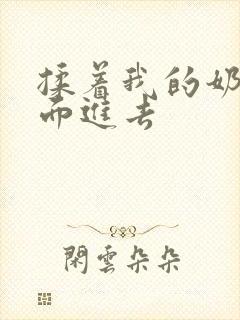 揉着我的奶
而進去
閑雲朵朵